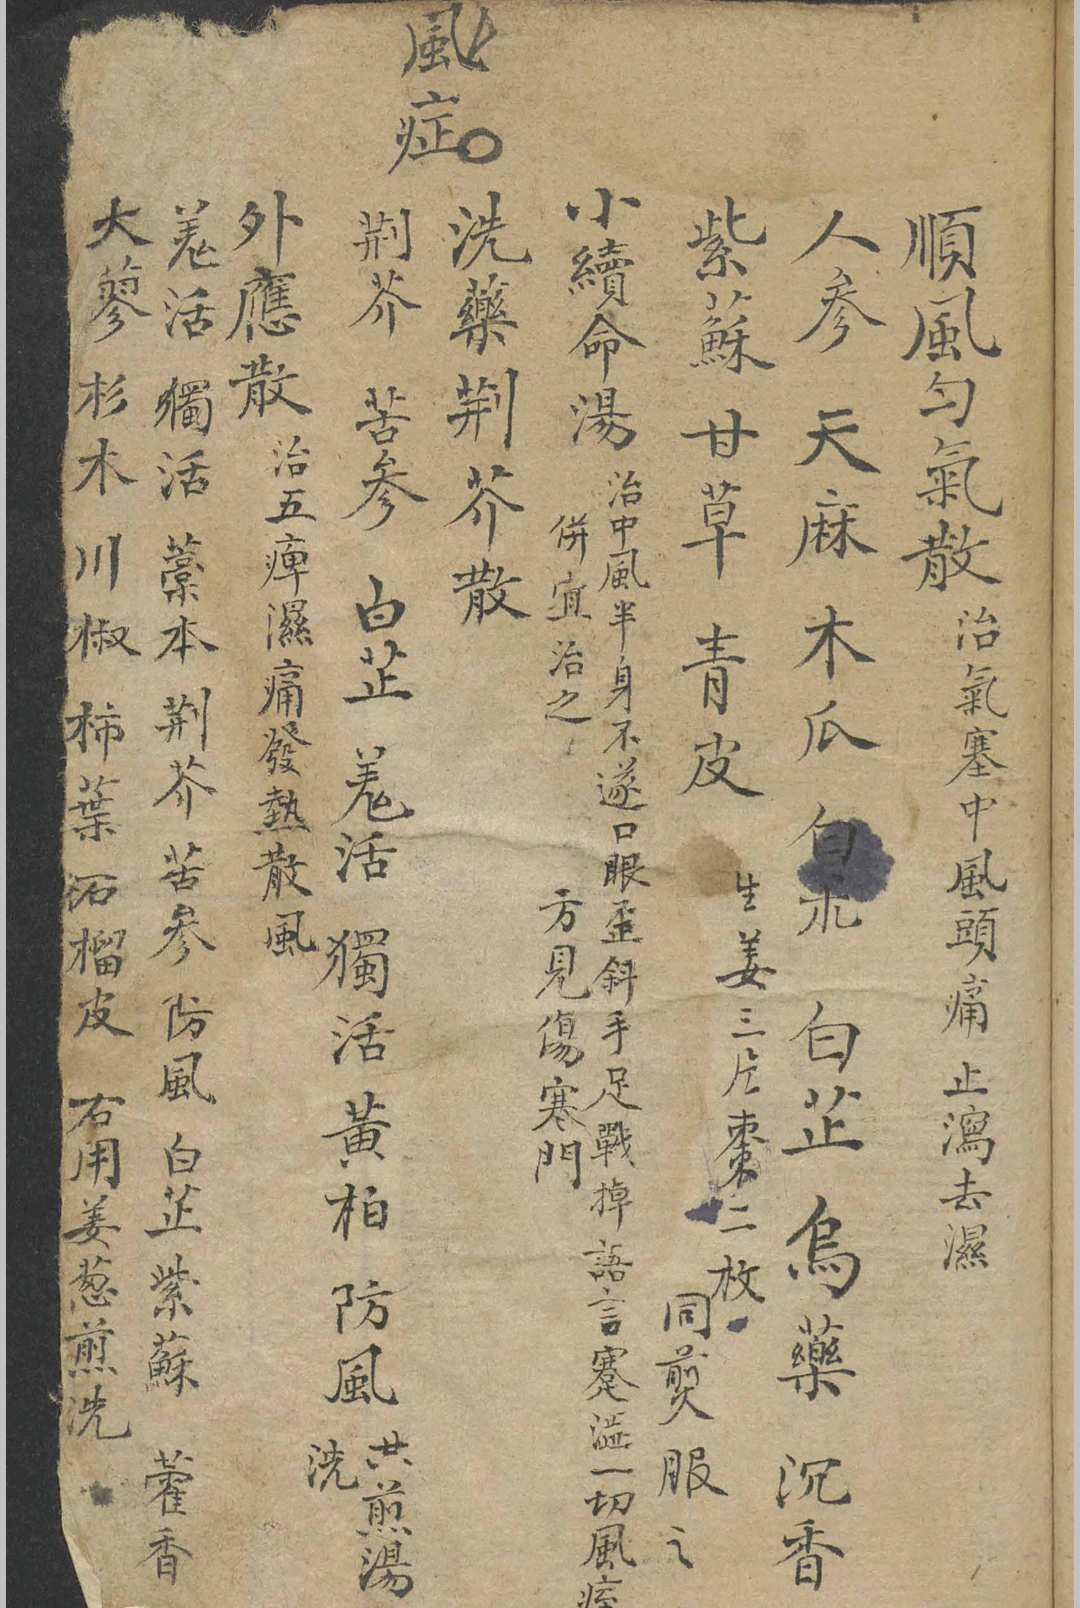 風症
順風勻氣散 治氣塞中風頭痛止瀉去濕
人參 天麻 木瓜 白朮 白芷 烏藥 沉香
紫蘇 甘草 青皮 生姜三片棗二枚 同煎服之
小續命湯 治中風半身不遂口眼歪斜手足戰掉語言蹇澁一切風症
併宜治之 方見傷寒門
洗藥荆芥散
荆芥 苦參 白芷 羗活 獨活 黃柏 防風 共煎湯
洗
外應散 治五痺濕痛發熱散風
羗活 獨活 藁本 荆芥 苦參 防風 白芷 紫蘇 藿香
大蓼 杉木 川椒 柿葉 石榴皮 右用姜葱煎洗